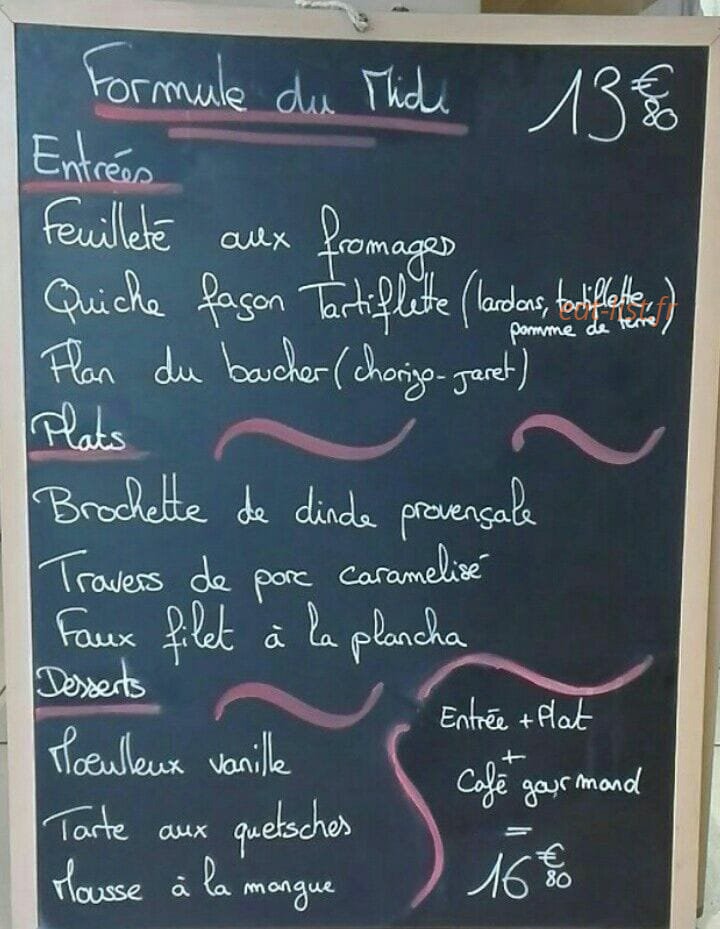 Formule du Midi 13€80
Entrées
Feuilleté aux fromages
Quiche façon Tartiflette (lardons, tartiflette
pomme de terre)
eat-list.fr
Flan du boucher (chorizo-jaret)
Plats
Brochette de dinde provençale
Travers de porc caramelisé
Faux filet à la plancha
Desserts
Moelleux vanille
Tarte aux quetsches
Mousse à la mangue
Entrée + Plat
+
Café gourmand
=
16€80